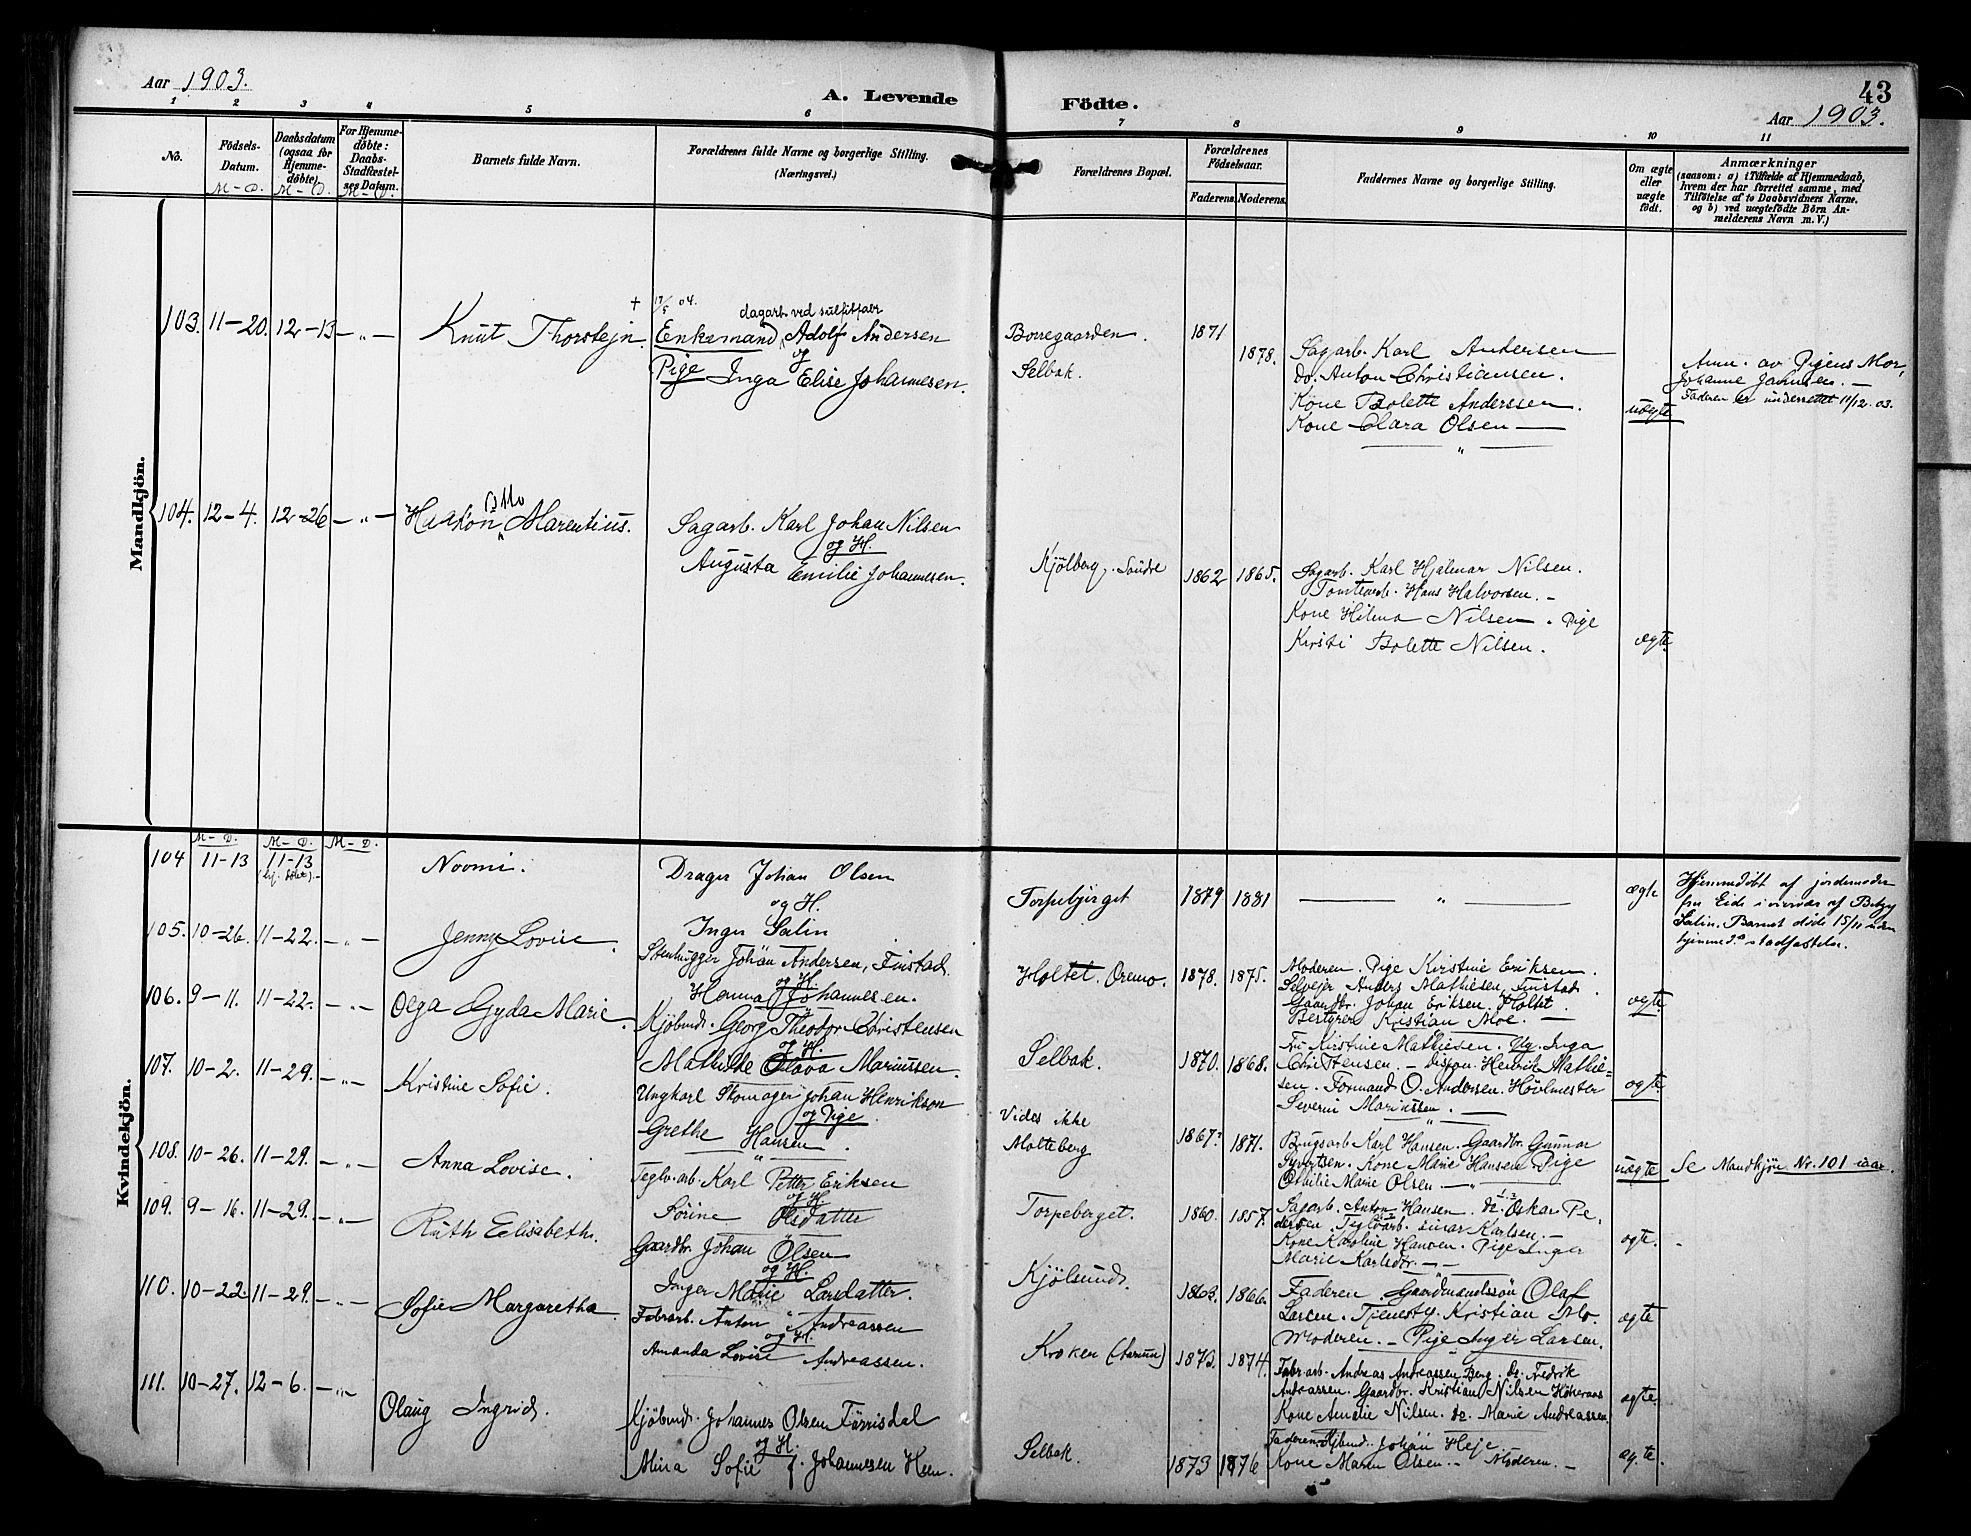 Aar 1903.
A. Levende
Födte.
43
Aar 1903.
1 2 3 4 5 6 7 8 9 10 11
No.
Födsels-
Datum.
M - D.
Daabsdatum
(ogsaa for
Hjemme-
döbte).
M - D.
For Hjemme-
döbte:
Daabs-
Stadfæstel-
ses Datum.
M - D.
Barnets fulde Navn.
Forældrenes fulde Navne og borgerlige Stilling.
(Næringsvei.)
Forældrenes Bopæl.
Forældrenes
Födselsaar.
Faderens. Moderens.
Faddernes Navne og borgerlige Stilling.
Om ægte
eller
uægte
födt.
Anmærkninger
(saasom: a) i Tilfælde af Hjemmedaab,
hvem der har forrettet samme, med
Tilföielse af to Daabsvidners Navne,
og b) ved uægtefödte Börn An-
melderens Navn m. V.)
Mandkjön.
103. 11-20. 12-13 - " -
Knut Thorstejn.
+ 17/5 04.
dagarb. ved sulfitfabr
Enkemand Adolf Andersen
og
Pige Inga Elise Johannesen.
Borregaarden.
Selbak.
1871
1878.
Sagarb. Karl Andersen
do. Anton Christiansen.
Kone Bolette Anderssen.
Kone Clara Olsen
"
uægte
Anm. av Pigens Mor,
Johanne
Faderen er underrettet 11/12. 03.
104. 12-4. 12-26 - " -
Otto
Haakon Marentius.
Sagarb. Karl Johan Nilsen
og H.
Augusta Emilie Johannesen.
Kjölberg, Söndre
1862 1865.
Sagarb. Karl Hjalmar Nilsen.
Tomtearb. Hans Halvorsen. -
Kone Hilma Nilsen. Pige
Kirsti Bolette Nilsen.
ægte
Kvindekjön.
M - D. M - D. M - D.
104 11-13 11-13
Noomi.
Drager Johan Olsen
og H.
Inger Salin
Torpebjerget
1879 1881
"
ægte
Hjemmedöbt af jordemoder
fru Eide i nærvær af Betzy
Salin. Barnet döde 15/11 uden
hjemmed. stadfæstelse.
105. 10-26. 11-22. - " -
Jenny Lovise.
Stenhugger Johan Andersen, Finstad.
og H.
Hanna Johannesen.
Holtet. Oremo.
1878. 1875.
Moderen. Pige Kirstine Eriksen.
Selvejer Anders Mathiesen, Finstad.
Gaardbr. Johan Eriksen. Holtet.
Bestyrer Kristian Moe. -
ægte.
106. 9-11. 11-22. - " -
Olga Gyda Marie.
Kjöbmd. Georg Theodor Christensen
og H.
Mathilde Olava Marinussen.
Selbak.
1870. 1868.
Fru Kirstine Mathiesen. Inga
Christensen. - Dispon. Henrik Mathie-
sen. Formand O. Andersen. Hövlmester
Severin Marinussen. -
ægte.
107. 10-2. 11-29. - " -
Kristine Sofie.
Ungkarl Skomager Johan Henrikson
og Pige
Grethe Hansen.
Vides ikke
Molteberg
1867? 1871.
Brugsarb. Karl Hansen. Gaardbr. Gunnar
Syvertsen. Kone Marie Hansen Pige
Othilie Marie Olsen. -
uægte
Se Mandkjön Nr. 101 iaar.
108. 10-26. 11-29. - " -
Anna Lovise.
Teglv.arb. Karl Petter Eriksen
og H.
Sörine Olsdatter
Torpeberget.
1860. 1857.
Sagarb. Anton Hansen. do. Oskar Pe-
dersen. Teglv.arb. Einar Karlsen. -
Kone Karoline Hansen. Pige Inger
Marie Karlsdtr. -
ægte. -
109. 9-16. 11-29. - " -
Ruth Elisabeth.
Gaardbr. Johan Olsen
og H.
Inger Marie Larsdatter.
Kjölsund.
1863. 1866.
Faderen. Gaardmandssön Olaf
Larsen. Tjenesty. Kristian Mo.
Moderen. - Pige Inger Larsen.
ægte
110. 10-22. 11-29. - " -
Sofie Margaretha.
Fabr.arb. Anton Andreassen
og H.
Amanda Lovise Andreassen.
Kroken
1873. 1874.
Fabr.arb. Andreas Andreassen Berg. do. Fredrik
Andreassen. Gaardbr. Kristian Nilsen
Kone Amalie Nilsen. do. Marie Andreassen.
ægte.
111. 10-27. 12-6. - " -
Olaug Ingrid.
Kjöbmd. Johannes Olsen Färrisdal
og H.
Mina Sofie f. Johannesen Heen.
Selbak.
1873 1876
Faderen. Kjbmd. Johan Heje
Kone Maren Olsen. - Moderen. -
ægte.